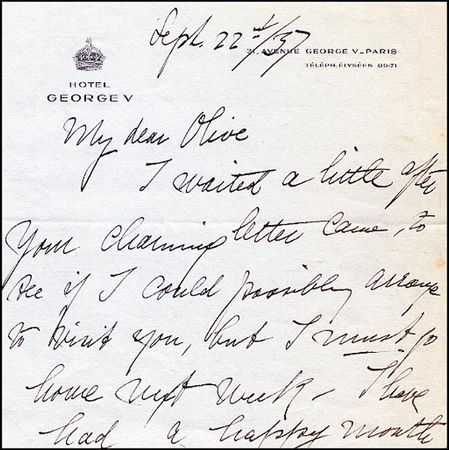 Sept. 22nd/37
31, AVENUE GEORGE V_PARIS
TÉLÉPH. ÉLYSÉES 89-71
HOTEL
GEORGE V
My dear Olive
I waited a little after
your charming letter came, to
see if I could possibly arrange
to visit you, but I must go
home next week – I have
had a happy month